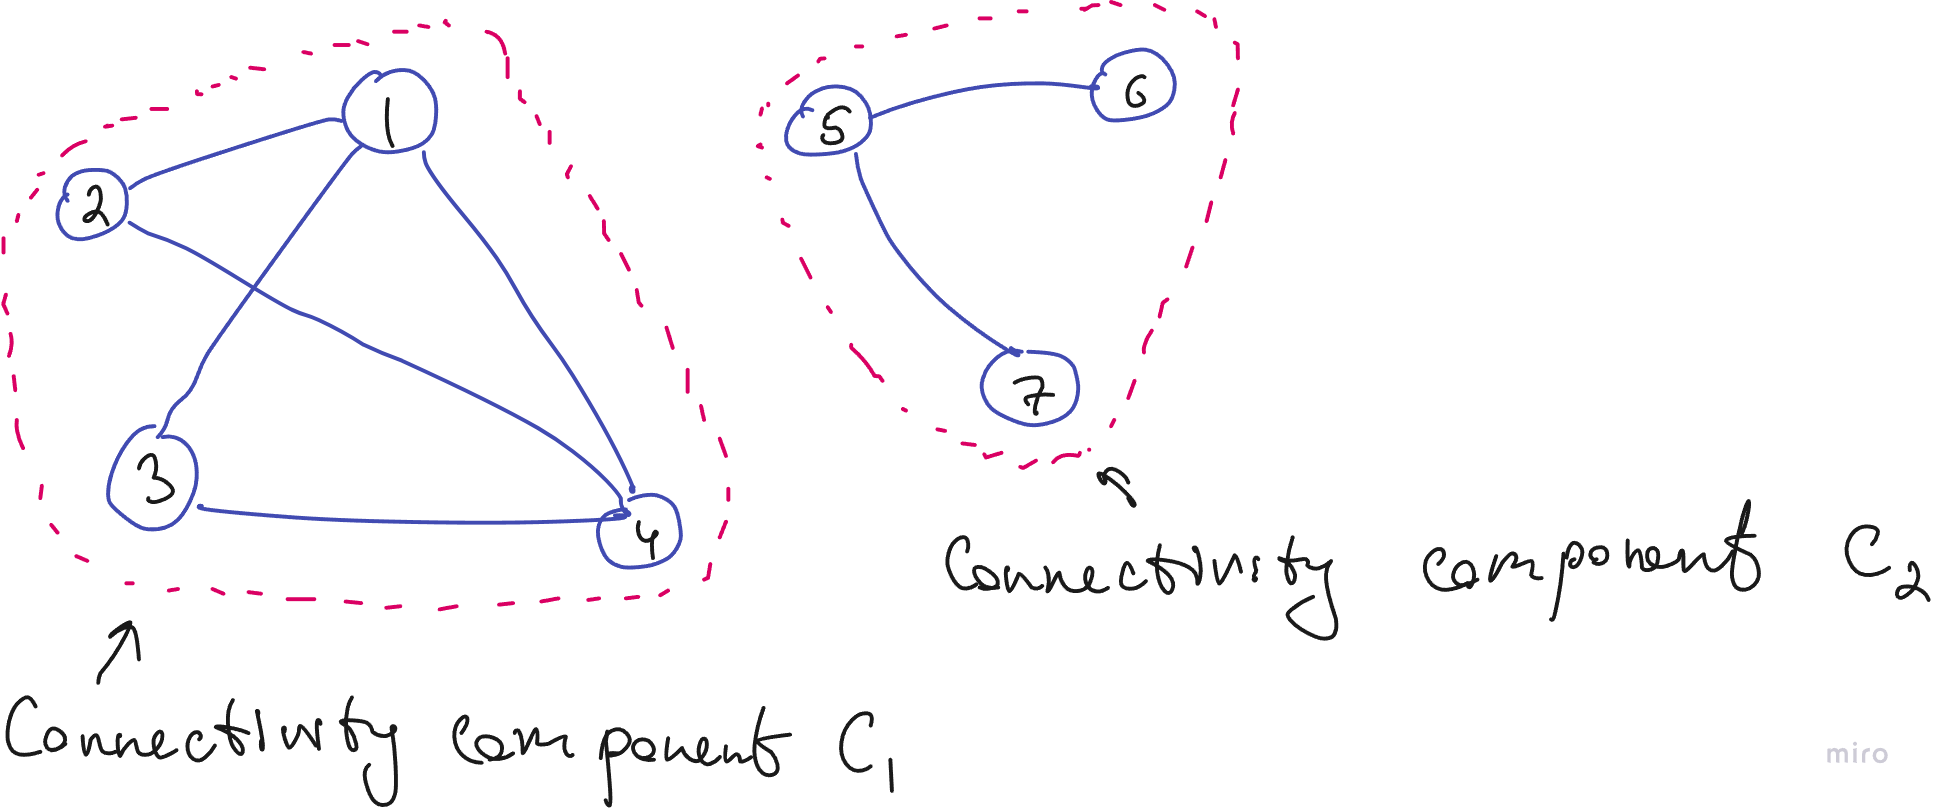 1
2
3
4
5
6
7
Connectivity component C2
Connectivity component C1
miro